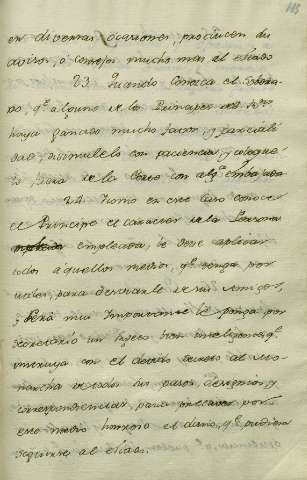 en diversas ocasiones, producen di
visiones, ò consejos mucho mas el estado
23. Quando Conosca el Sobera-
no, qe. alguno de los Principes
haya ganado mucho y parciali
dad, disimulelo con paciencia, y coloque-
lo fuera de la Corte con alga. embajada
24. Como en este caso conoce
el Principe el caracter de la Persona
empleada, le debe aplicar
todos aquellos medios, qe. tenga por
utiles, para desviarle
, Será mui Importante le ponga por
Secretario un sujeto inteligente, qe.
instruya con el devido secreto al Mo-
narcha de todos sus pasos, designios, y
correspondencias, para precaver por
este medio el daño, qe. pudiera
seguirse al estado.